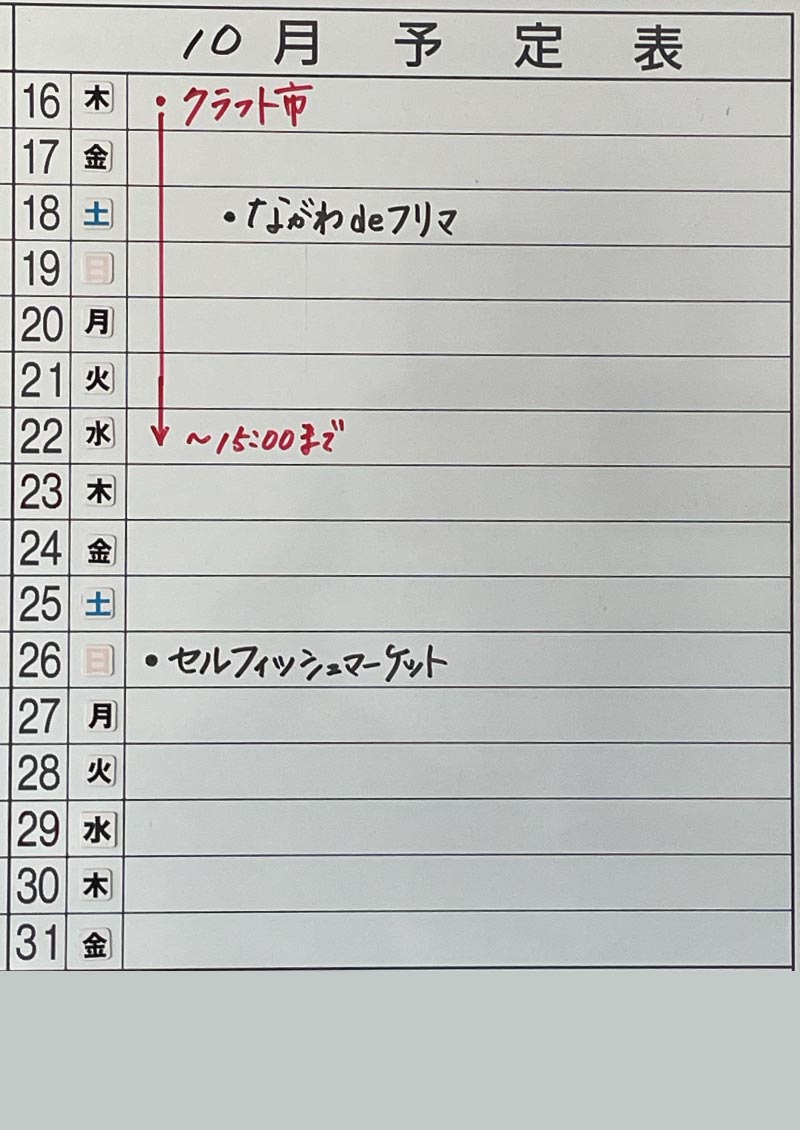 10月予定表
16 木 ・クラフト市
17 金
18 土 ・ながわdeフリマ
19 日
20 月
21 火
22 水 ~15:00まで
23 木
24 金
25 土
26 日 ・セルフィッシュマーケット
27 月
28 火
29 水
30 木
31 金